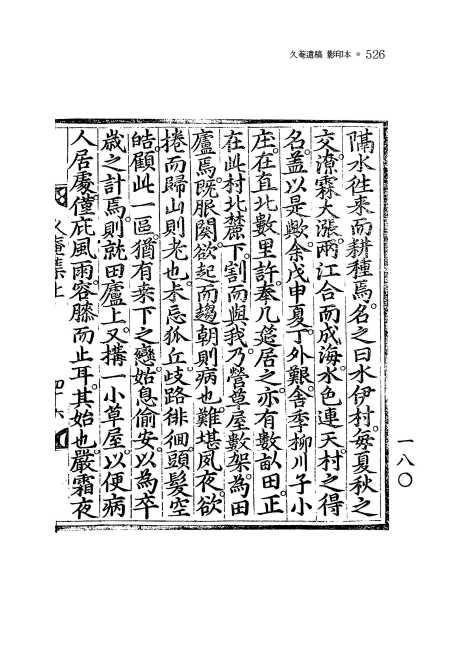 久菴遺稿 影印本 ● 526
隔水徃来而耕種焉。名之曰水伊村。每夏秋之
交。潦霖大漲。兩江合而成海。水色連天。村之得
名。盖以是歟。余戊申夏。丁外艱。舍季柳川子小
庄。在直北數里許。奉几筵居之。亦有數畝田。正
在此村北麓下。割而與我。乃營草屋數架。為田
廬焉。旣服闋。欲起而趨朝則病也。難堪夙夜。欲
捲而歸山則老也。未忘狐丘。歧路徘徊。頭髮空
皓。顧此一區。猶有桒下之戀。姑息偷安。以為卒
歲之計焉。則就田廬上。又搆一小草屋。以便病
人居處。僅庇風雨。容膝而止耳。其始也。嚴霜夜
久菴集上
四十六
一八〇